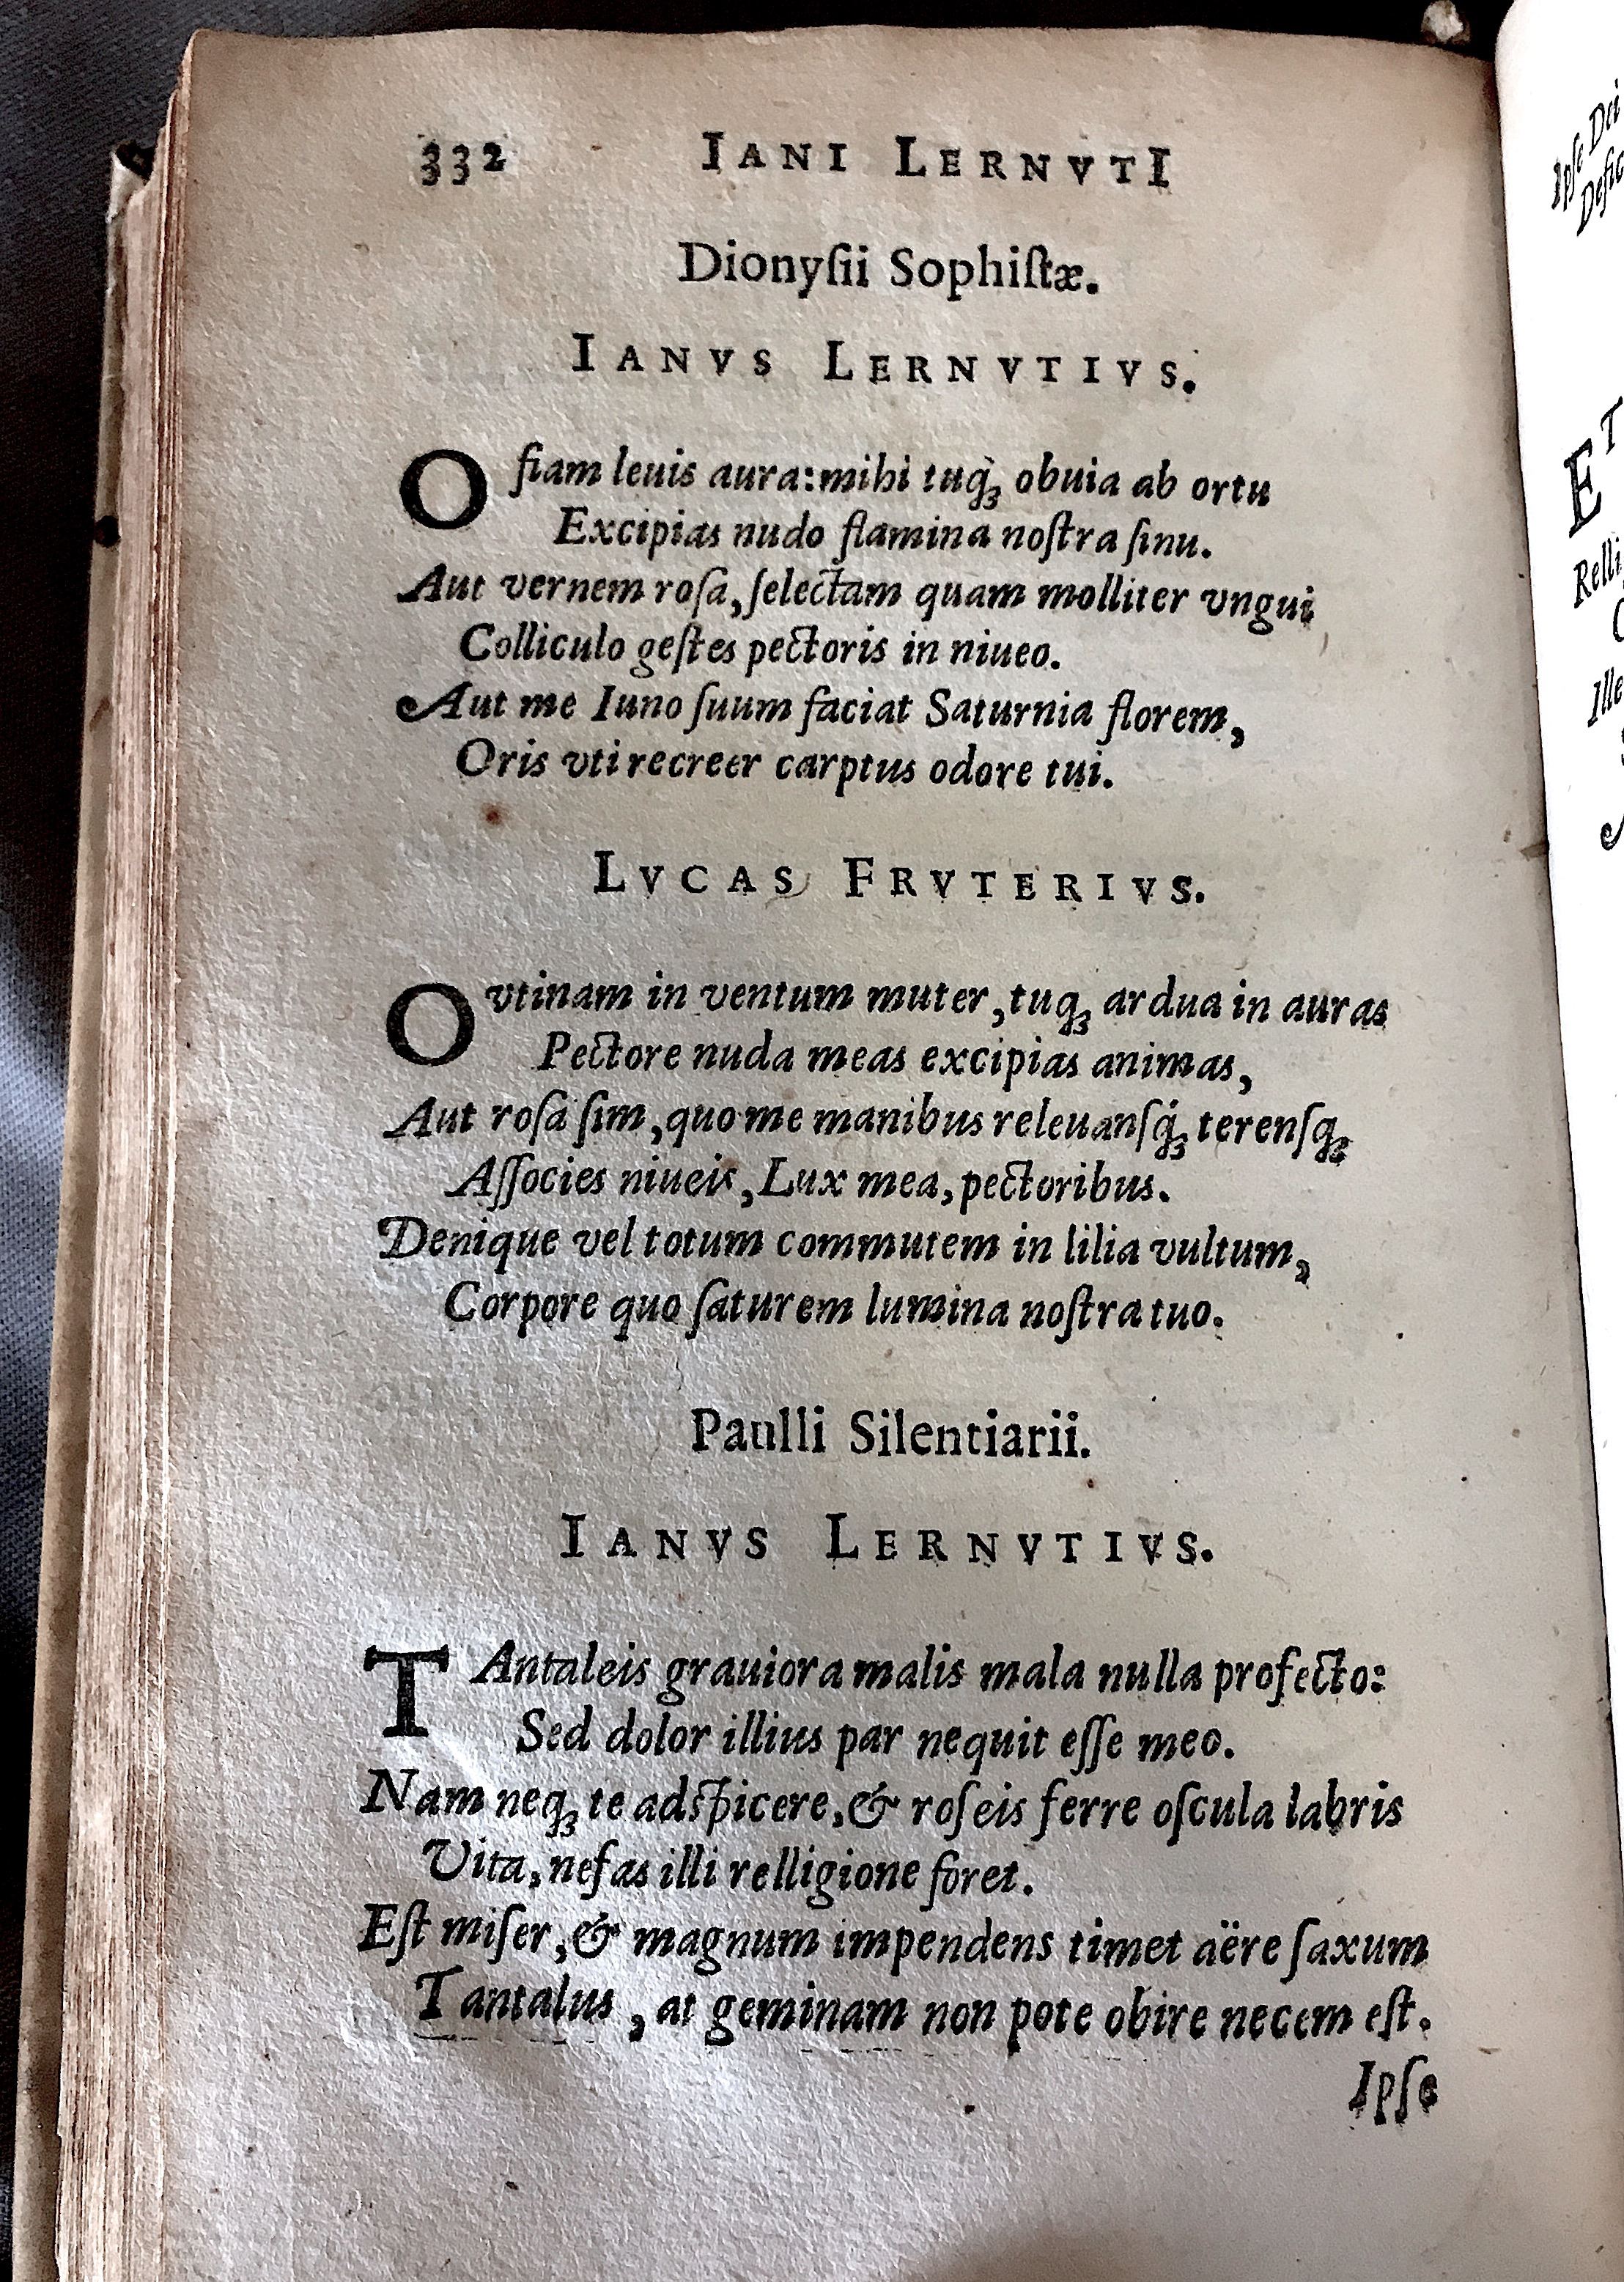 332 IANI LERNVTI
Dionyſii Sophiſtæ.
IANVS LERNVTIVS.
O fiam leuis aura: mihi tuq́ꝫ obuia ab ortu
Excipias nudo flamina noſtra ſinu.
Aut vernem roſa, ſelectam quam molliter vngui
Colliculo geſtes pectoris in niueo.
Aut me Iuno ſuum faciat Saturnia florem,
Oris vti recreer carptus odore tui.
LVCAS FRVTERIVS.
O vtinam in ventum muter, tuqꝫ ardua in auras
Pectore nuda meas excipias animas,
Aut roſa ſim, quo me manibus releuanſq́ꝫ terenſqꝫ
Aſſocies niueis, Lux mea, pectoribus.
Denique vel totum commutem in lilia vultum,
Corpore quo ſaturem lumina noſtra tuo.
Paulli Silentiarii.
IANVS LERNVTIVS.
TAntaleis grauiora malis mala nulla profecto:
Sed dolor illius par nequit eſſe meo.
Nam neqꝫ te adſpicere, & roſeis ferre oſcula labris
Vita, nefas illi relligione foret.
Eſt miſer, & magnum impendens timet aëre ſaxum
Tantalus, at geminam non pote obire necem eſt.
Ipſe
Ipſe Dei
ET
Relli
Ille